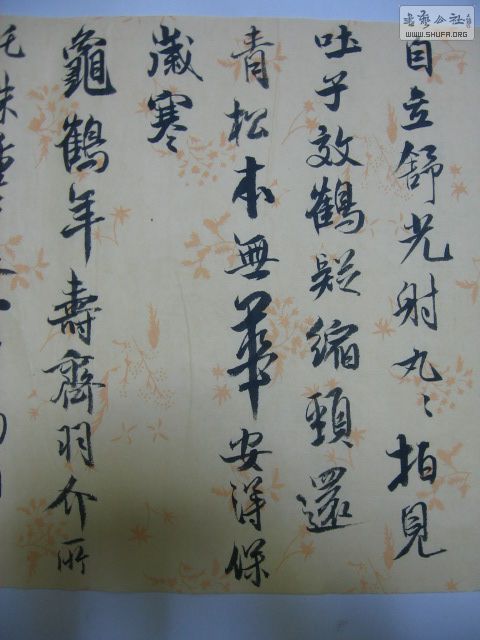 自立舒光射丸〻拍見
吐子效鶴疑縮頸還
青松本無華安得保
歲寒
龜鶴年壽齊羽介所
書藝公社
WWW.SHUFA.ORG